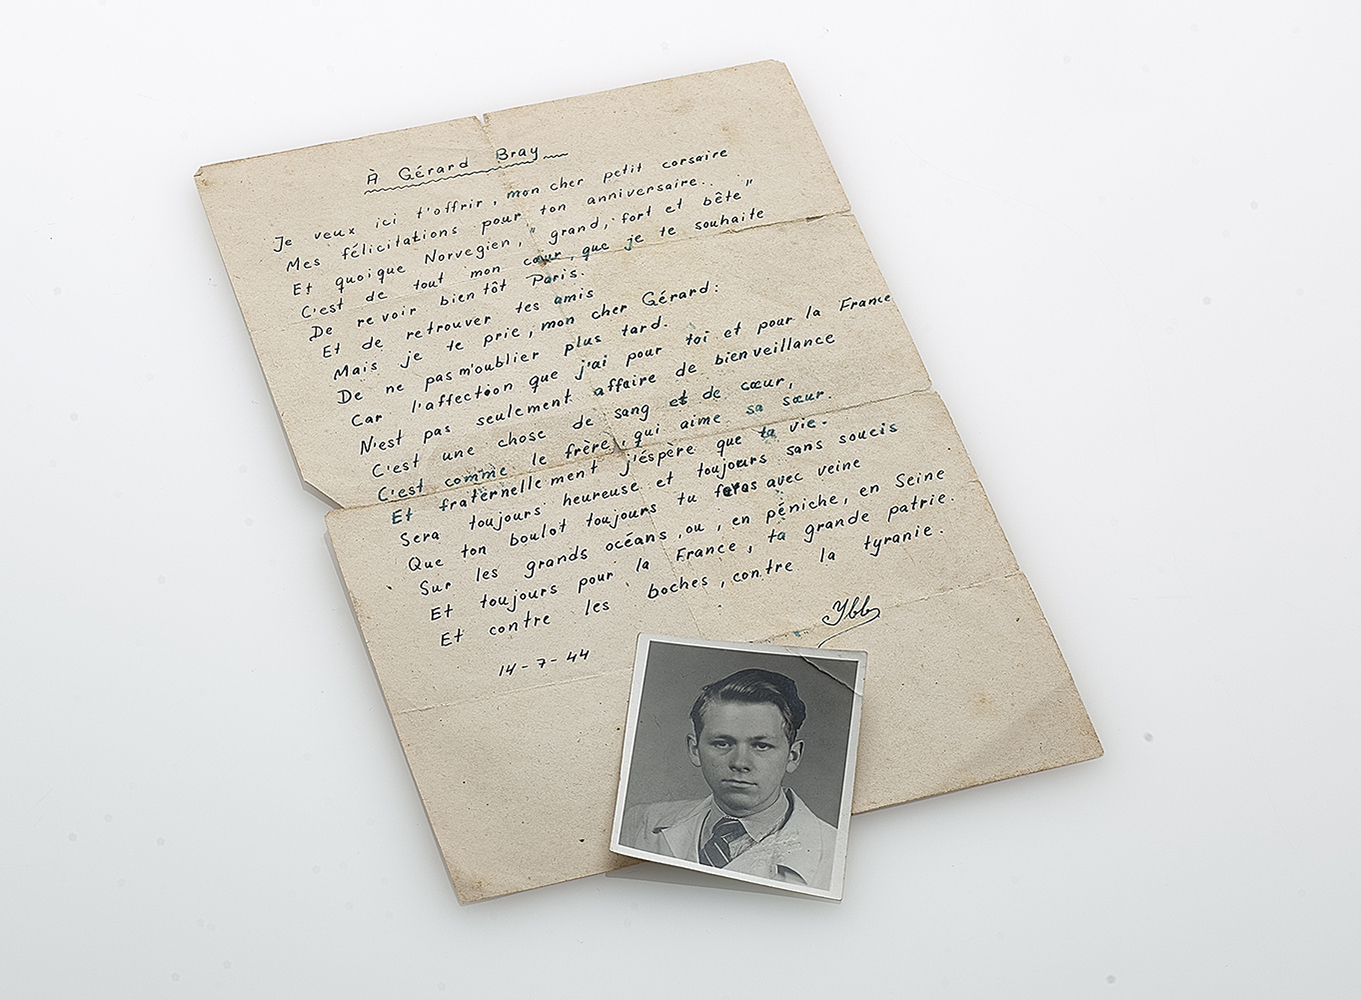 À Gérard Bray
Je veux ici t'offrir, mon cher petit corsaire
Mes félicitations pour ton anniversaire.
Et quoique Norvegien, "grand, fort et bête"
C'est de tout mon cœur, que je te souhaite
De revoir bientôt Paris.
Et de retrouver tes amis
Mais je te prie, mon cher Gérard:
De ne pas m'oublier plus tard.
Car l'affection que j'ai pour toi et pour la France
N'est pas seulement affaire de bienveillance
C'est une chose de sang et de cœur,
C'est comme le frère, qui aime sa sœur.
Et fraternellement j'éspère que ta vie.
Sera toujours heureuse et toujours sans soucis
Que ton boulot toujours tu feras avec veine
Sur les grands océans, ou, en péniche, en Seine
Et toujours pour la France, ta grande patrie.
Et contre les boches, contre la tyranie.
Ybb
14-7-44